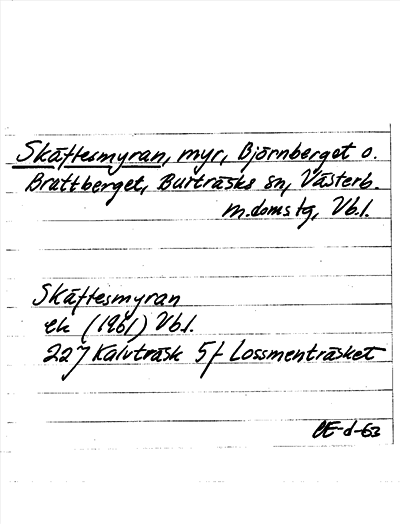 Skäftesmyran, myr, Björnberget o.
Brattberget, Burträsks sn, Västerb.
m. doms tg, Vb.l.
Skäftesmyran
ek (1961) Vb.l.
22J Kalvträsk 5f Lossmenträsket
CE-d-63